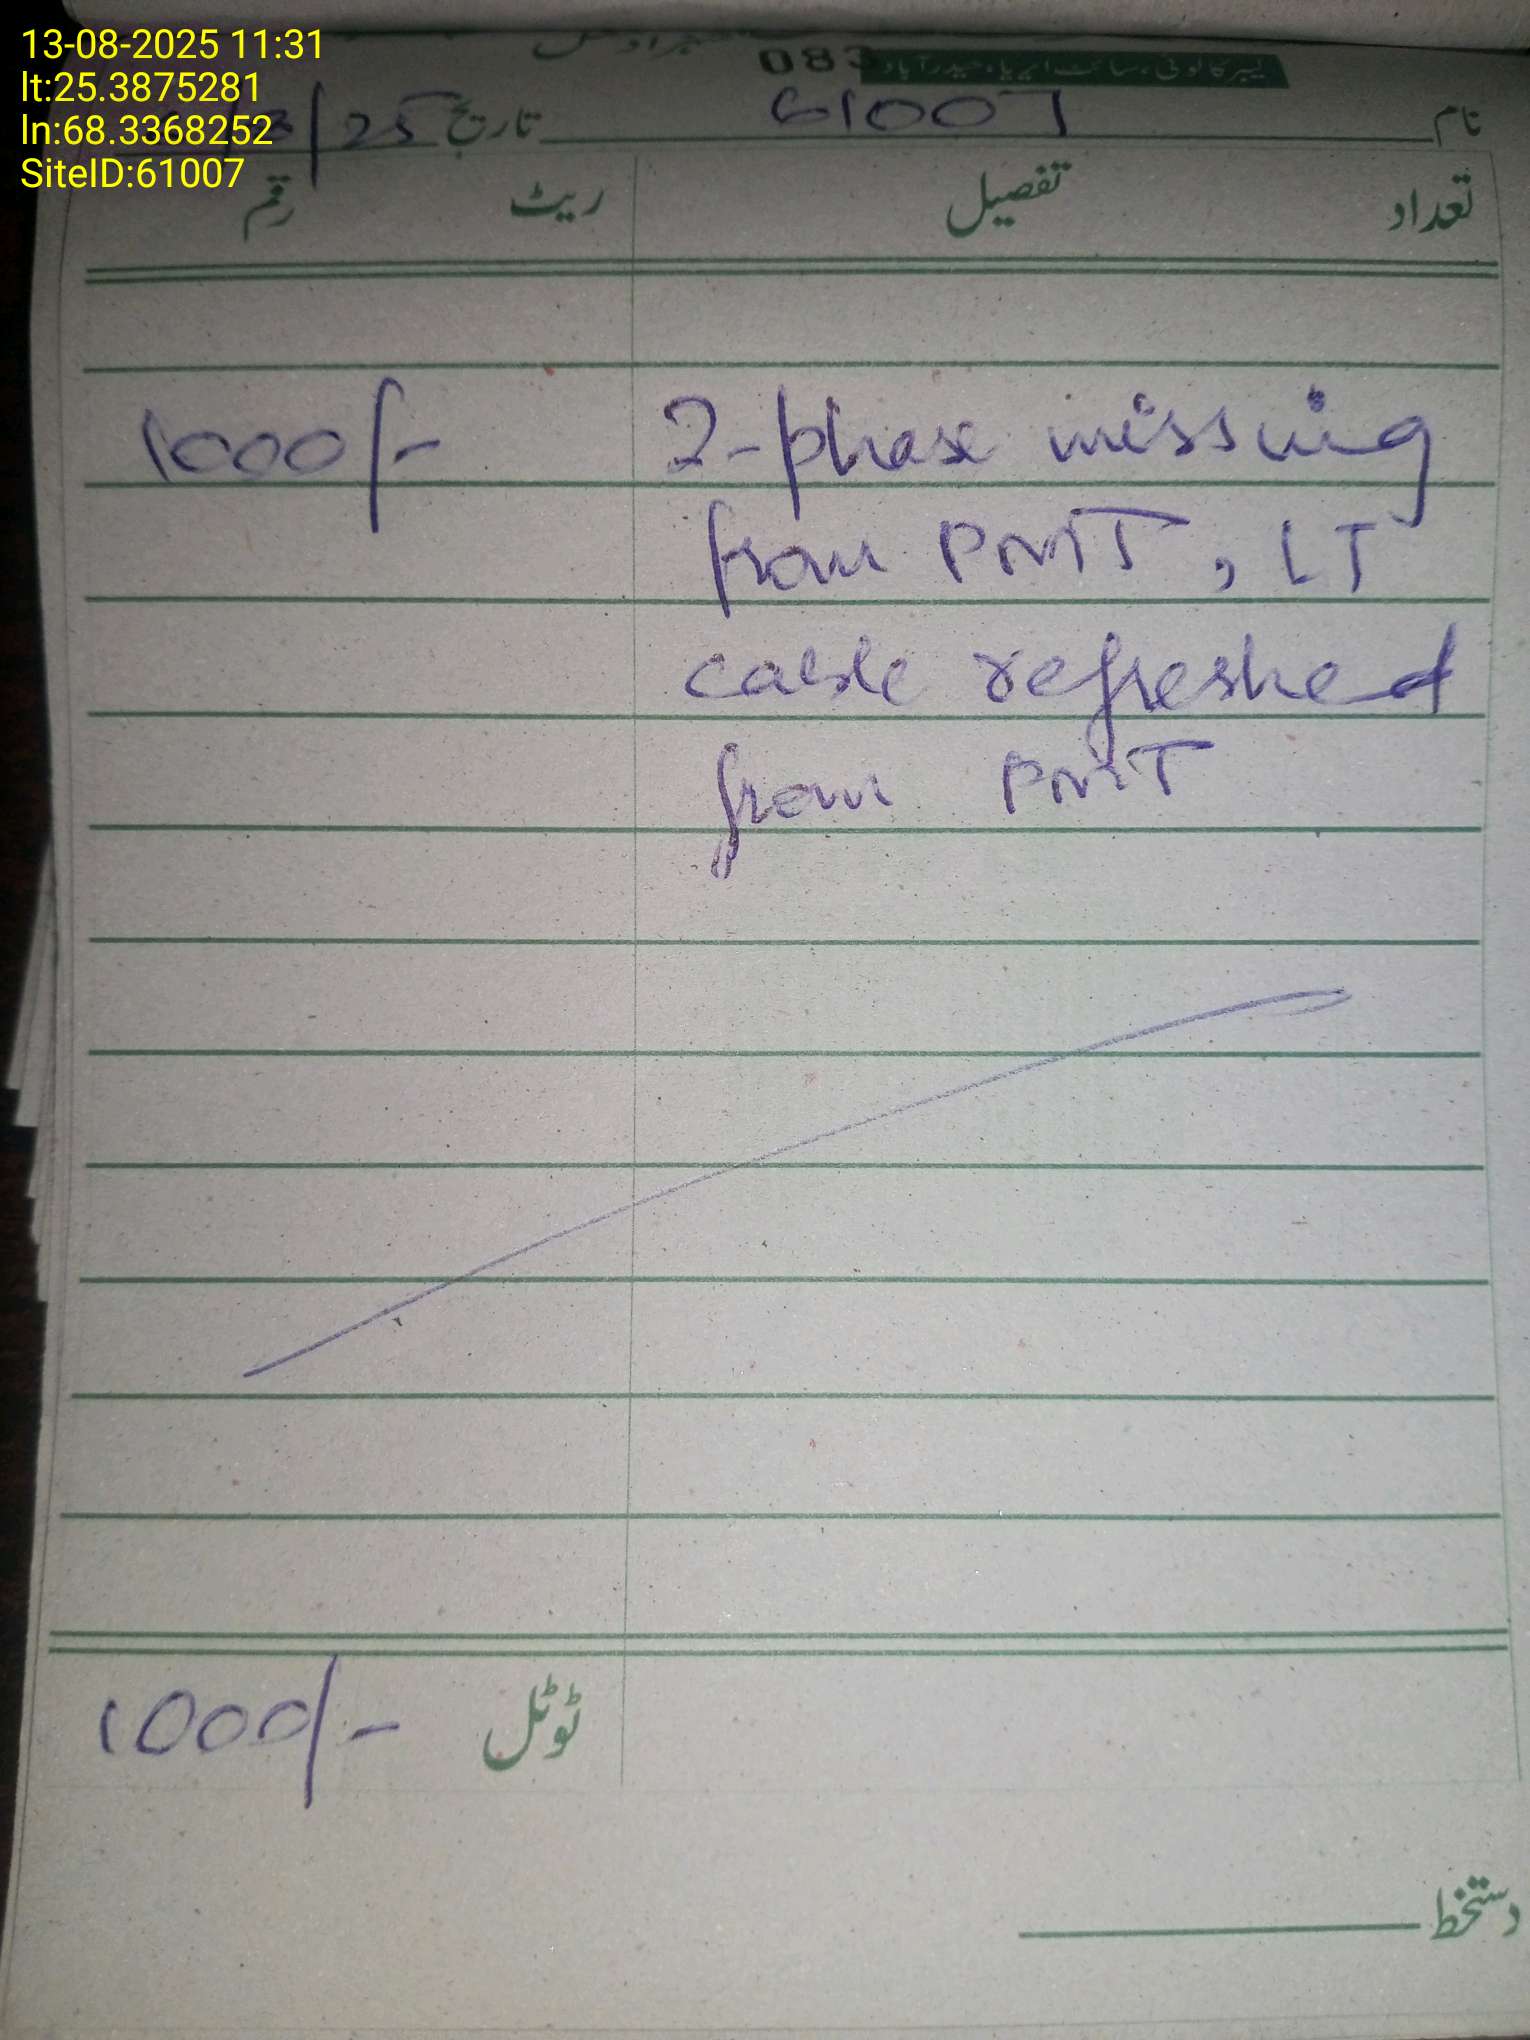 13-08-2025 11:31
lt:25.3875281
ln:68.3368252
SiteID:61007
083
لیبر کالونی، سائٹ ایریا، حیدرآباد
نام 61007 تاریخ /25
تعداد تفصیل ریٹ رقم
2-phase missing 1000/-
from PMT, LT
cable refreshed
from PMT
ٹوٹل 1000/-
دستخط